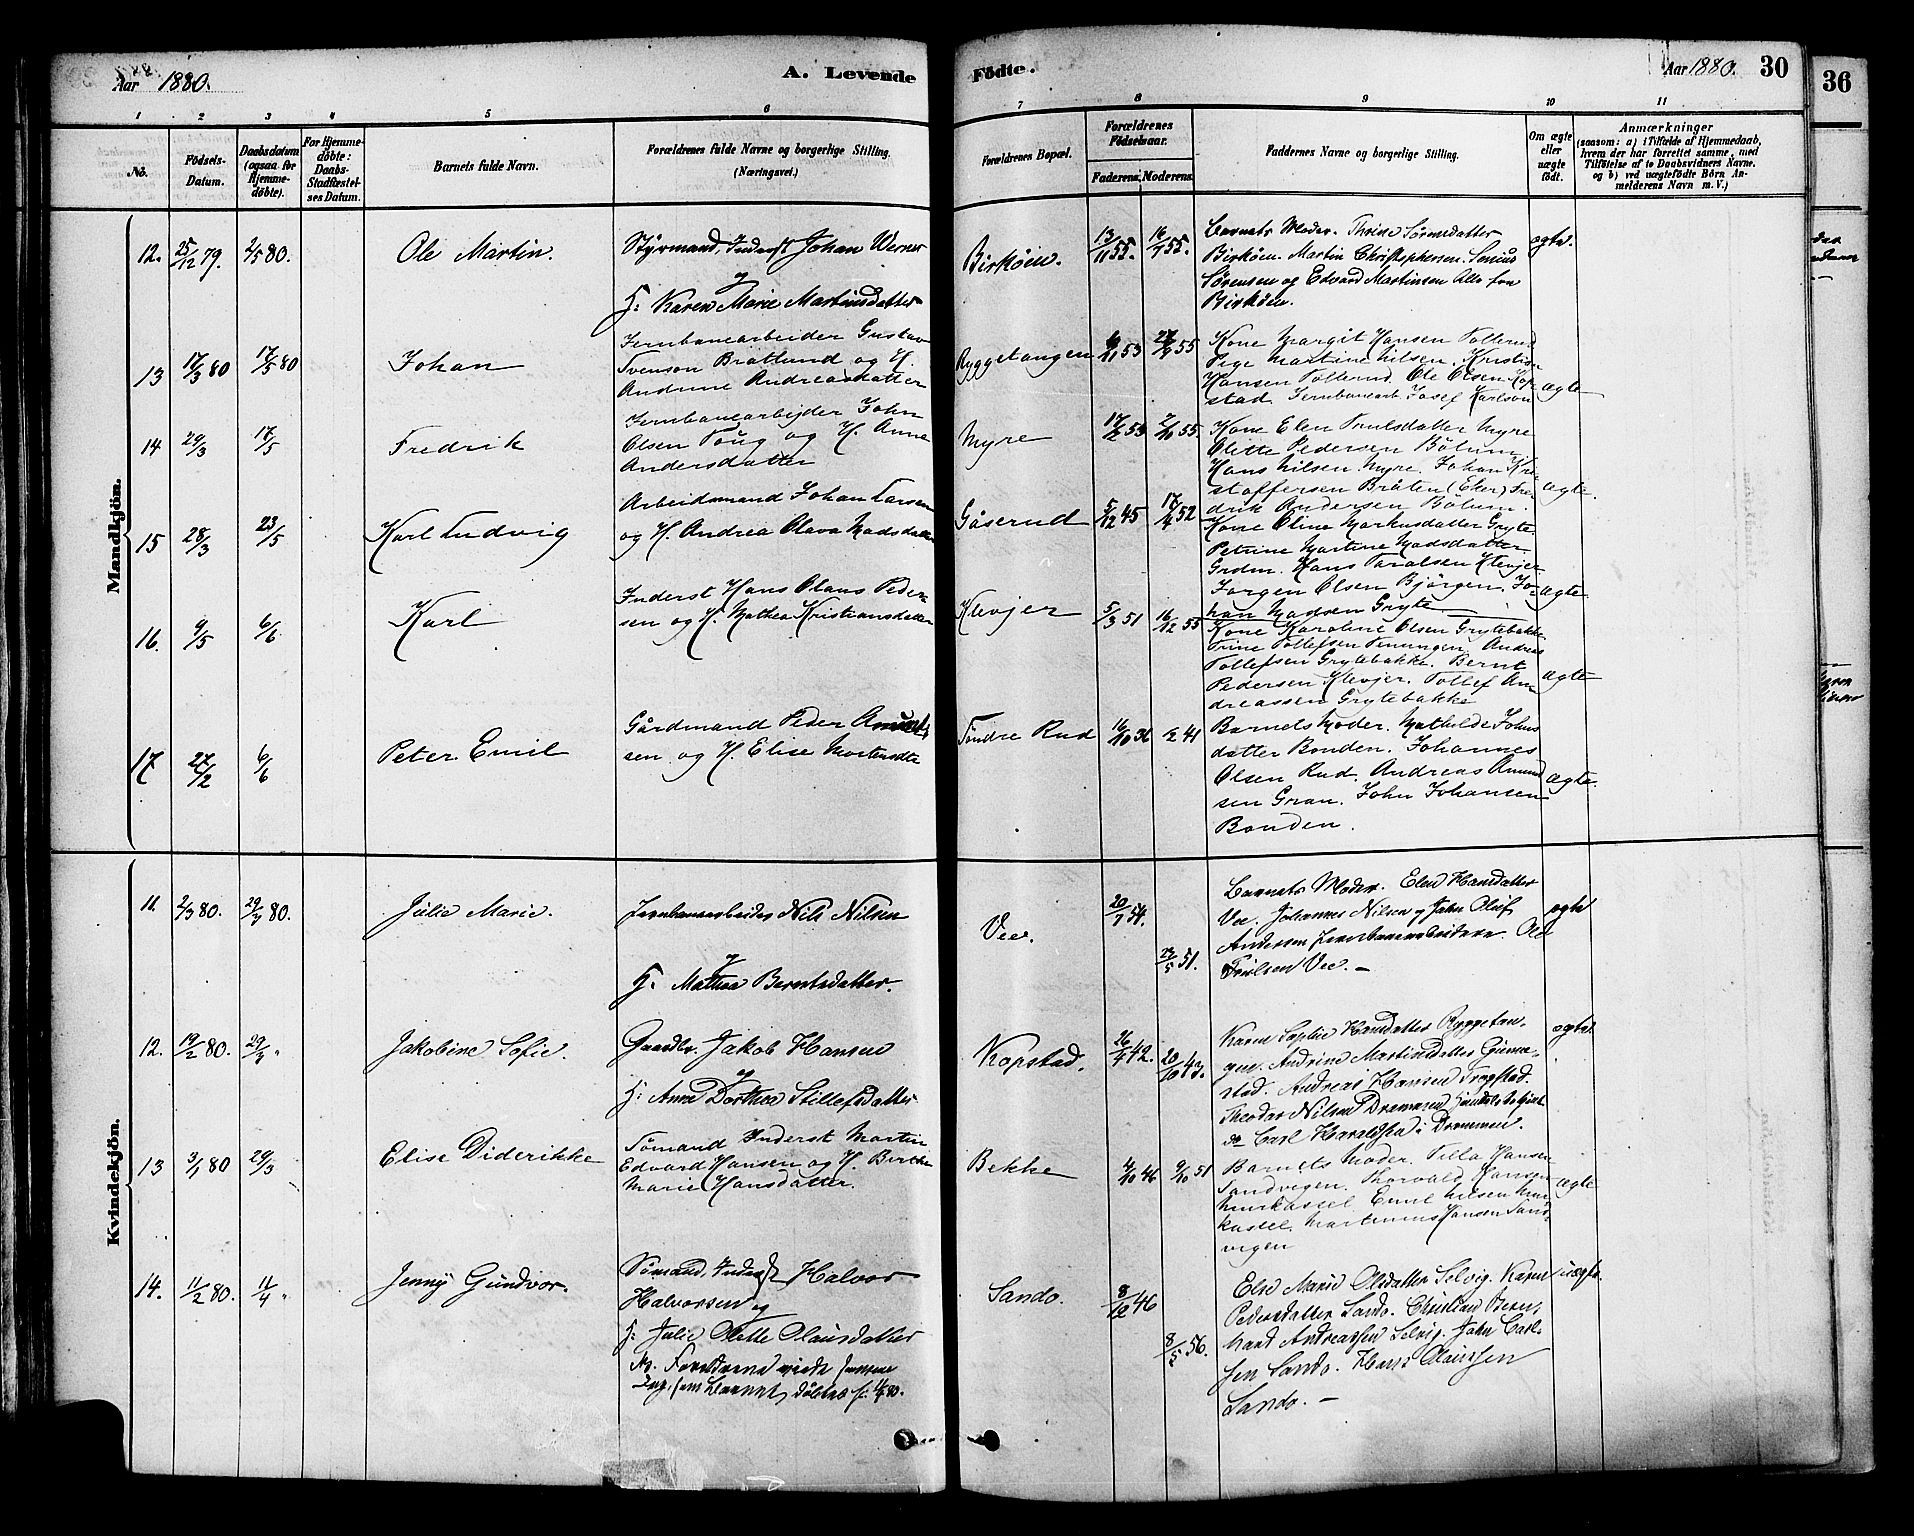 Aar 1880.
A. Levende
Födte.
Aar 1880.
30
36
1 2 3 4 5 6 7 8 9 10 11
No.
Födsels-
Datum.
Daabsdatum
(ogsaa for
Hjemme-
döbte).
For Hjemme-
döbte:
Daabs-
Stadfæstel-
ses Datum.
Barnets fulde Navn.
Forældrenes fulde Navne og borgerlige Stilling.
(Næringsvei.)
Forældrenes Bopæl.
Forældrenes
Födselsaar.
Faderens. Moderens.
Faddernes Navne og borgerlige Stilling.
Om ægte
eller
uægte
født.
Anmærkninger
(saasom: a) i Tilfælde af Hjemmedaab,
hvem der har forrettet samme, med
Tilföielse af to Daabsvidners Navne,
og b) ved uægtefödte Börn An-
melderens Navn m. V.)
Mandkjön.
12. 25/12 79. 2/5 80. Ole Martin.
Styrmand, Inderst Johan Werner
g
H: Karen Marie Martinsdatter
Birköen. 13/11 55. 16/7 55.
Barnets Moder. Thrine Sörensdatter
Birköen. Martin Christophersen.
Sörensen og Edvard Martinsen Alle fra
Birköen.
ægte.
13 17/3 80 17/5 80 Johan
Jernbanearbeider Gustav
Svenson Bratlund og H.
Andrine Andreasdatter
Ryggetangen 6/11 53 27/9 55
Kone Margit Hansen Tollerud
Pige Martine Nilsen. Kristian
Hansen Tollerud. Ole Olsen Kop-
stad. Jernbanearb. Josef Karlson
ægte
14 29/3 17/5 Fredrik
Jernbanearbejder John
Olsen Toug og H. Anne
Andersdatter
Myre 17/12 53 7/10 55.
Kone Elen Trulsdatter Myre
Olette Pedersen Bölum,
Hans Nilsen Myre. Johan Kri-
stoffersen Bråten (Eker) Fre-
drik Andersen Bölum.
ægte
15 28/3 23/5 Karl Ludvig
Arbeidsmand Johan Larsen
og H. Andrea Olava Madsdatter
Gåserud 5/12 45 17/4 52
Kone Oline Markusdatter Gryte.
Petrine Martine Madsdatter
Grdm. Hans Taralsen Klevjer
Jørgen Olsen Bjørgen. Jo-
han Madsen Gryte
ægte
16. 9/5 6/6 Karl
Inderst Hans Olaus Peder-
sen og H. Mathea Kristiansdatter
Klevjer 5/3 51 16/12 55
Kone Karoline Olsen Grytebakke
Trine Tollefsen Andreas
Tollefsen Grytebakke. Bernt
Pedersen Klevjer. Tollef An-
dreassen Grytebakke
ægte
17 27/2 6/6 Peter Emil
Gårdmand Peder Amunt-
sen og H. Elise Mortensdtr
Søndre Rud 16/10 36 41
Barnets Moder. Mathilde Johns
datter Bonden. Johannes
Olsen Rud. Andreas Amund
sen Gran. John Johansen
Bonden.
ægte
Kvindekjön.
11. 2/3 80. 29/3 80. Julie Marie.
Jernbanearbeider Nils Nilsen
g
H. Mathea Berntsdatter.
Vee. 20/7 54. 23/5 51.
Barnets Moder. Elen Hansdatter
Vee. Johannes Nilsen og John Oluf
Andersen Jernbanearbeidere. Ole
Trulsen Vee. —
ægte
12. 19/2 80. 29/3 " Jakobine Sofie.
Gaardbr. Jakob Hansen
g
H: Anne Dorthea Stillefsdatter
Kopstad. 26/4 42. 20/10 43.
Karen Sophie Hansdatter Ryggetan-
gen. Andrine Martinsdatter
stad. Andreas Hansen
Theodor Nilsen Drammen
Carl Haraldsen i Drammen.
ægte
13 3/1 80 29/3 Elise Diderikke
Sømand Inderst Martin
Edvard Hansen og H. Berthe
Marie Hansdatter.
Bekke 4/10 46 9/10 51
Barnets Moder. Tilla Hansen
Sandvigen. Thorvald Hansen
Murkastel. Emil Nilsen Mur-
kastel. Martinius Hansen Sand-
vigen
ægte
14. 11/2 80. 11/4 " Jenny Gundvor.
Sömand, Inderst Halvor
Halvorsen og
H: Julie Olette Olausdatter
No. Forældrene viede samme
Dag, som Barnet döbtes
Sando. 8/12 46 8/5 56.
Else Marie Olsdatter Selvig. Karen
Pedersdatter Sando. Christian Bern-
hard Andreassen Selvig. John Carl-
sen Sando. Hans Olaussen
Sando. —
uægte.